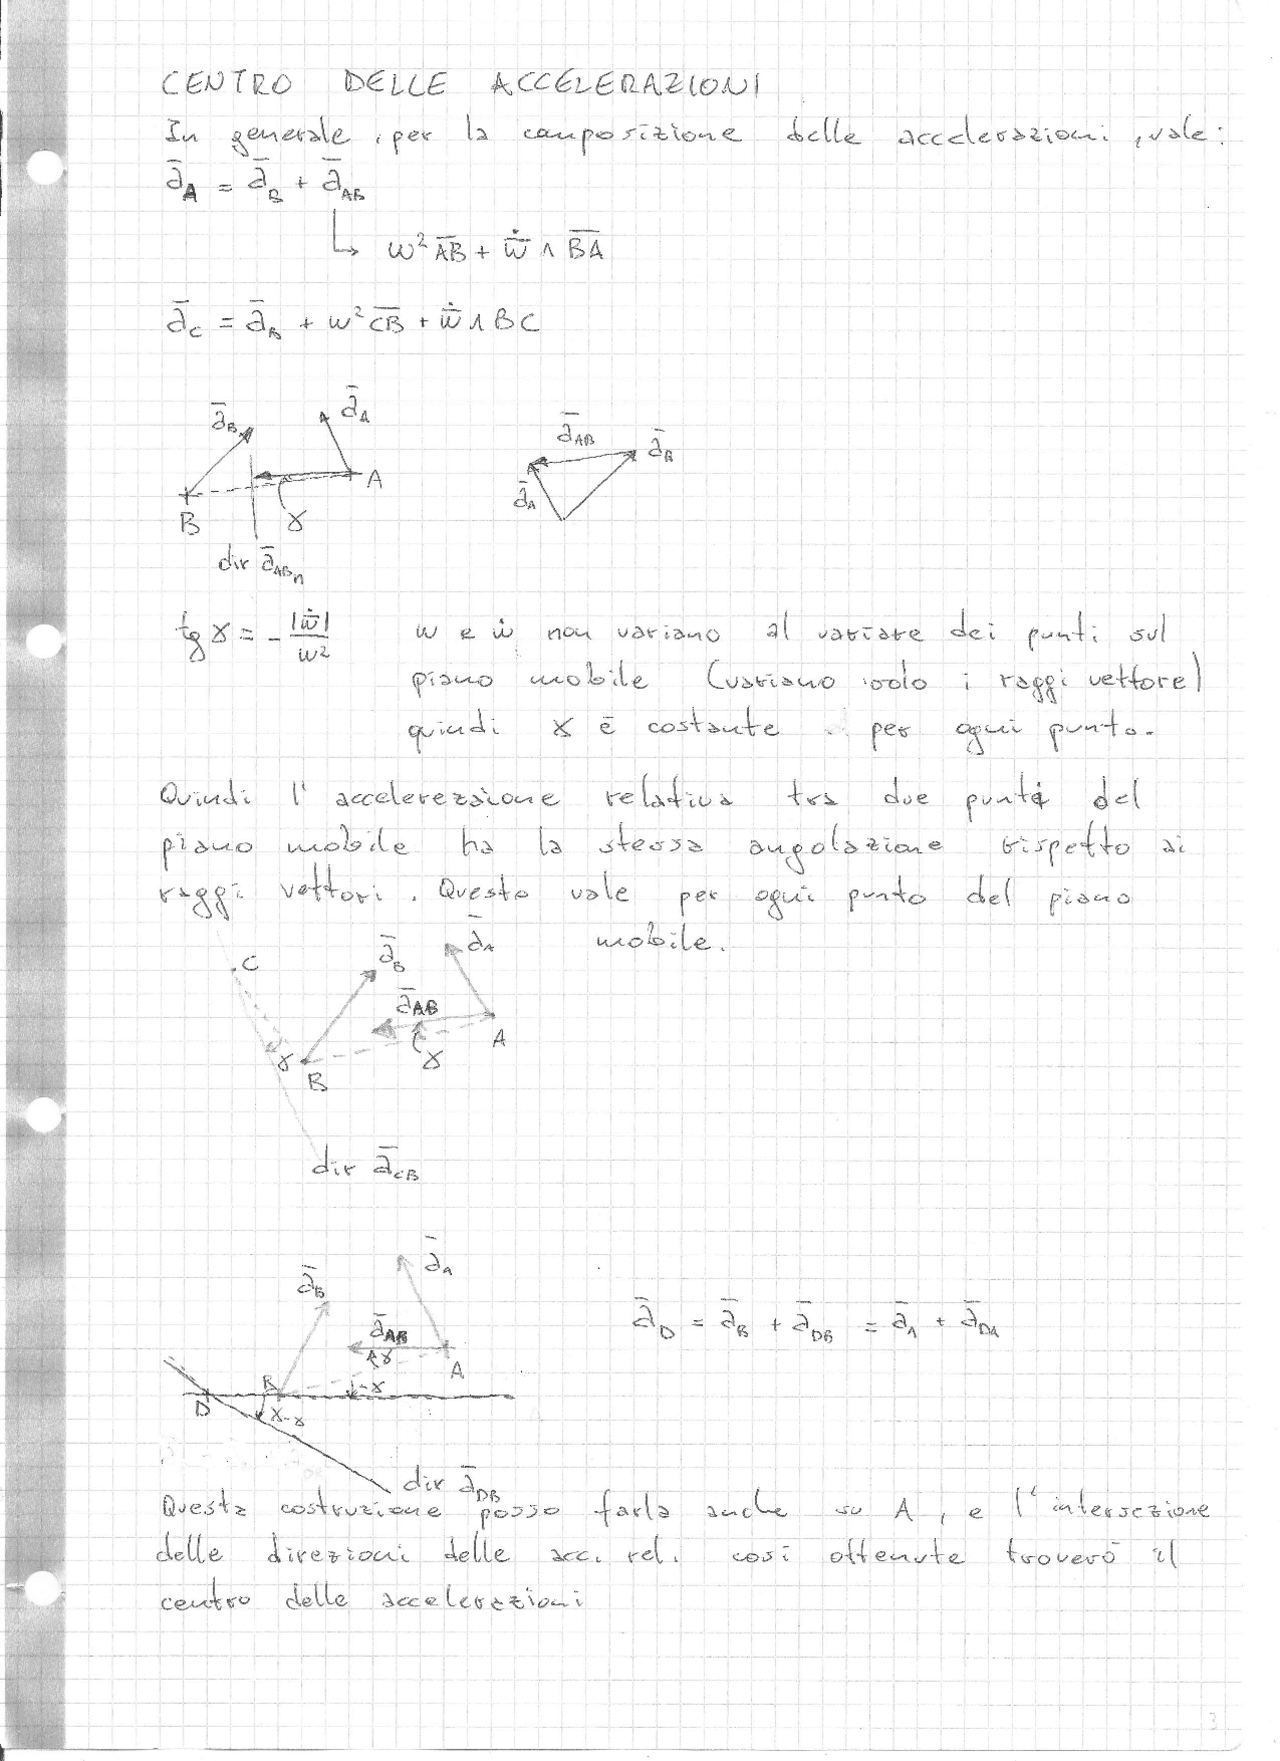 CENTRO DELLE ACCELERAZIONI
In generale, per la composizione delle accelerazioni, vale:
ā_A = ā_B + ā_AB
↳ ω² A̅B̅ + ω̇̄ ∧ B̅A̅
ā_C = ā_B + ω² C̅B̅ + ω̇̄ ∧ BC
ā_B ā_A ā_AB ā_B
A ā_A
B γ
dir ā_ABn
tg γ = - |ω̇̄| / ω² ω e ω̇ non variano al variare dei punti sul
piano mobile (variano solo i raggi vettore)
quindi γ è costante per ogni punto.
Quindi l'accelerezaione relativa tra due punti del
piano mobile ha la stessa angolazione rispetto ai
raggi vettori. Questo vale per ogni punto del piano
mobile.
C ā_B ā_A
ā_AB
A
γ B γ
dir ā_CB
ā_B ā_A
ā_AB
γ A
ā_D = ā_B + ā_DB = ā_A + ā_DA
D B -γ
γ-γ
dir ā_DB
Questa costruzione posso farla anche su A, e l'intersezione
delle direzioni delle acc. rel. così ottenute troverò il
centro delle accelerazioni
3